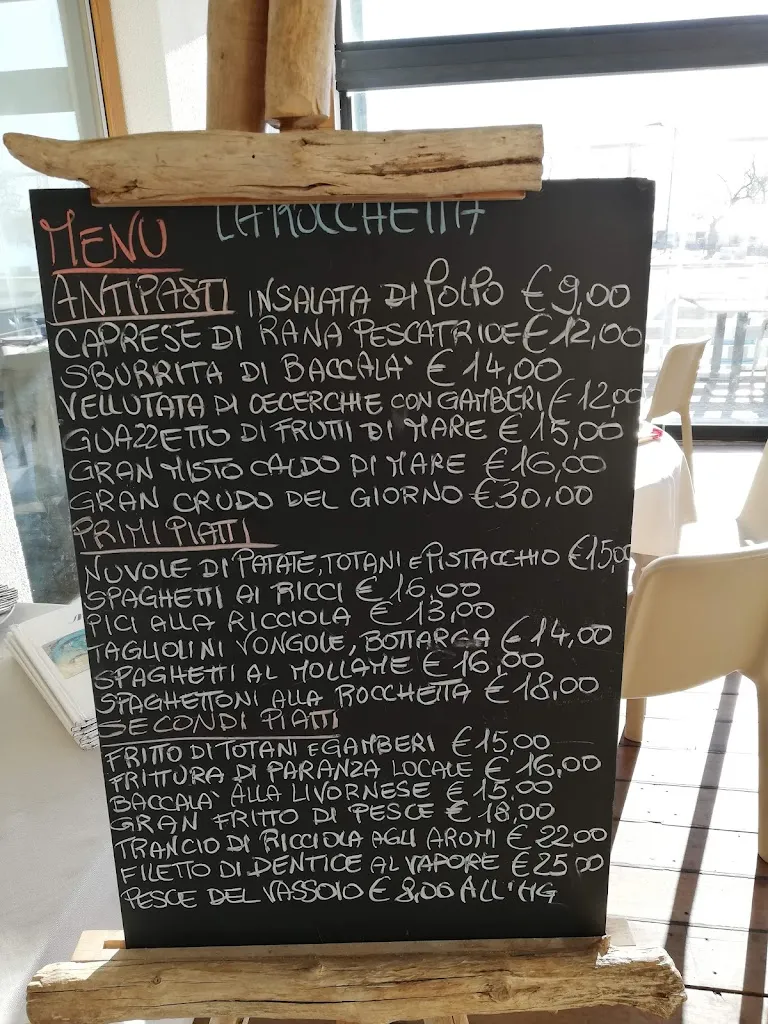 LA ROCCHETTA
MENU
ANTIPASTI INSALATA DI POLPO €9,00
CAPRESE DI RANA PESCATRICE €12,00
SBURRITA DI BACCALA' € 14,00
VELLUTATA DI CECERCHIE CON GAMBERI € 12,00
GUAZZETTO DI FRUTTI DI MARE € 15,00
GRAN MISTO CALDO DI MARE €16,00
GRAN CRUDO DEL GIORNO €30,00
PRIMI PIATTI
NUVOLE DI PATATE, TOTANI E PISTACCHIO €15,00
SPAGHETTI AI RICCI € 16,00
PICI ALLA RICCIOLA € 13,00
TAGLIOLINI VONGOLE, BOTTARGA € 14,00
SPAGHETTI AL MOLLAME € 16,00
SPAGHETTONI ALLA ROCCHETTA € 18,00
SECONDI PIATTI
FRITTO DI TOTANI E GAMBERI € 15,00
FRITTURA DI PARANZA LOCALE € 16,00
BACCALA' ALLA LIVORNESE € 15,00
GRAN FRITTO DI PESCE € 18,00
TRANCIO DI RICCIOLA AGLI AROMI € 22,00
FILETTO DI DENTICE AL VAPORE € 25,00
PESCE DEL VASSOIO € 8,00 ALL'HG